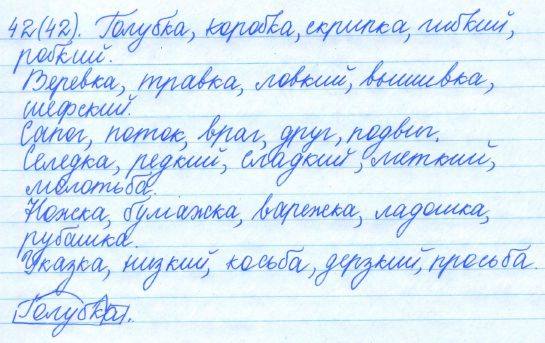 42(42). Голубка, коробка, скрипка, гибкий,
робкий.
Веревка, травка, ловкий, вышивка,
шефский.
Сапог, поток, враг, друг, подвиг.
Селедка, редкий, сладкий, меткий,
молотьба.
Ножка, бумажка, варежка, ладошка,
рубашка.
Указка, низкий, косьба, дерзкий, просьба.
Голубка.